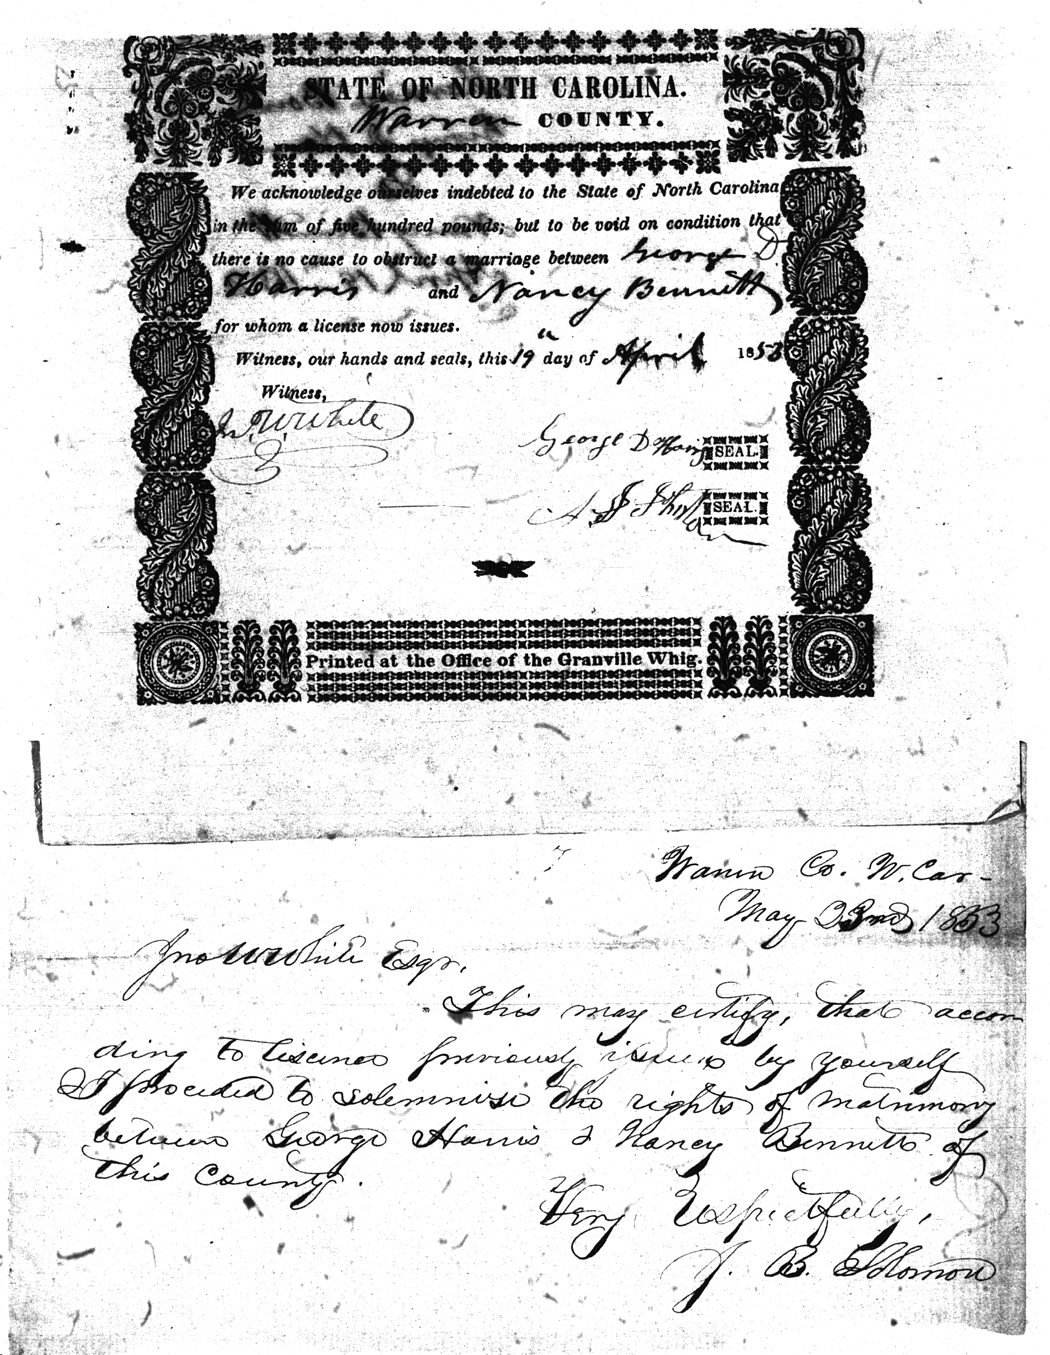 STATE OF NORTH CAROLINA.
Warren COUNTY.
We acknowledge ourselves indebted to the State of North Carolina
in the sum of five hundred pounds; but to be void on condition that
there is no cause to obstruct a marriage between George D
Harris and Nancy Bennett
for whom a license now issues.
Witness, our hands and seals, this 19 day of April 1853
Witness,
Jno W White
George D Harris SEAL.
A. SEAL.
Printed at the Office of the Granville Whig.
Warren Co. N. Car-
May 23rd 1853
Jno W White Esqr.
This may certify, that accor
ding to liscence previously issued by yourself
I proceeded to solemnise the rights of matrimony
between George Harris & Nancy Bennett of
this County.
Very Respectfully,
J. B. Solomon